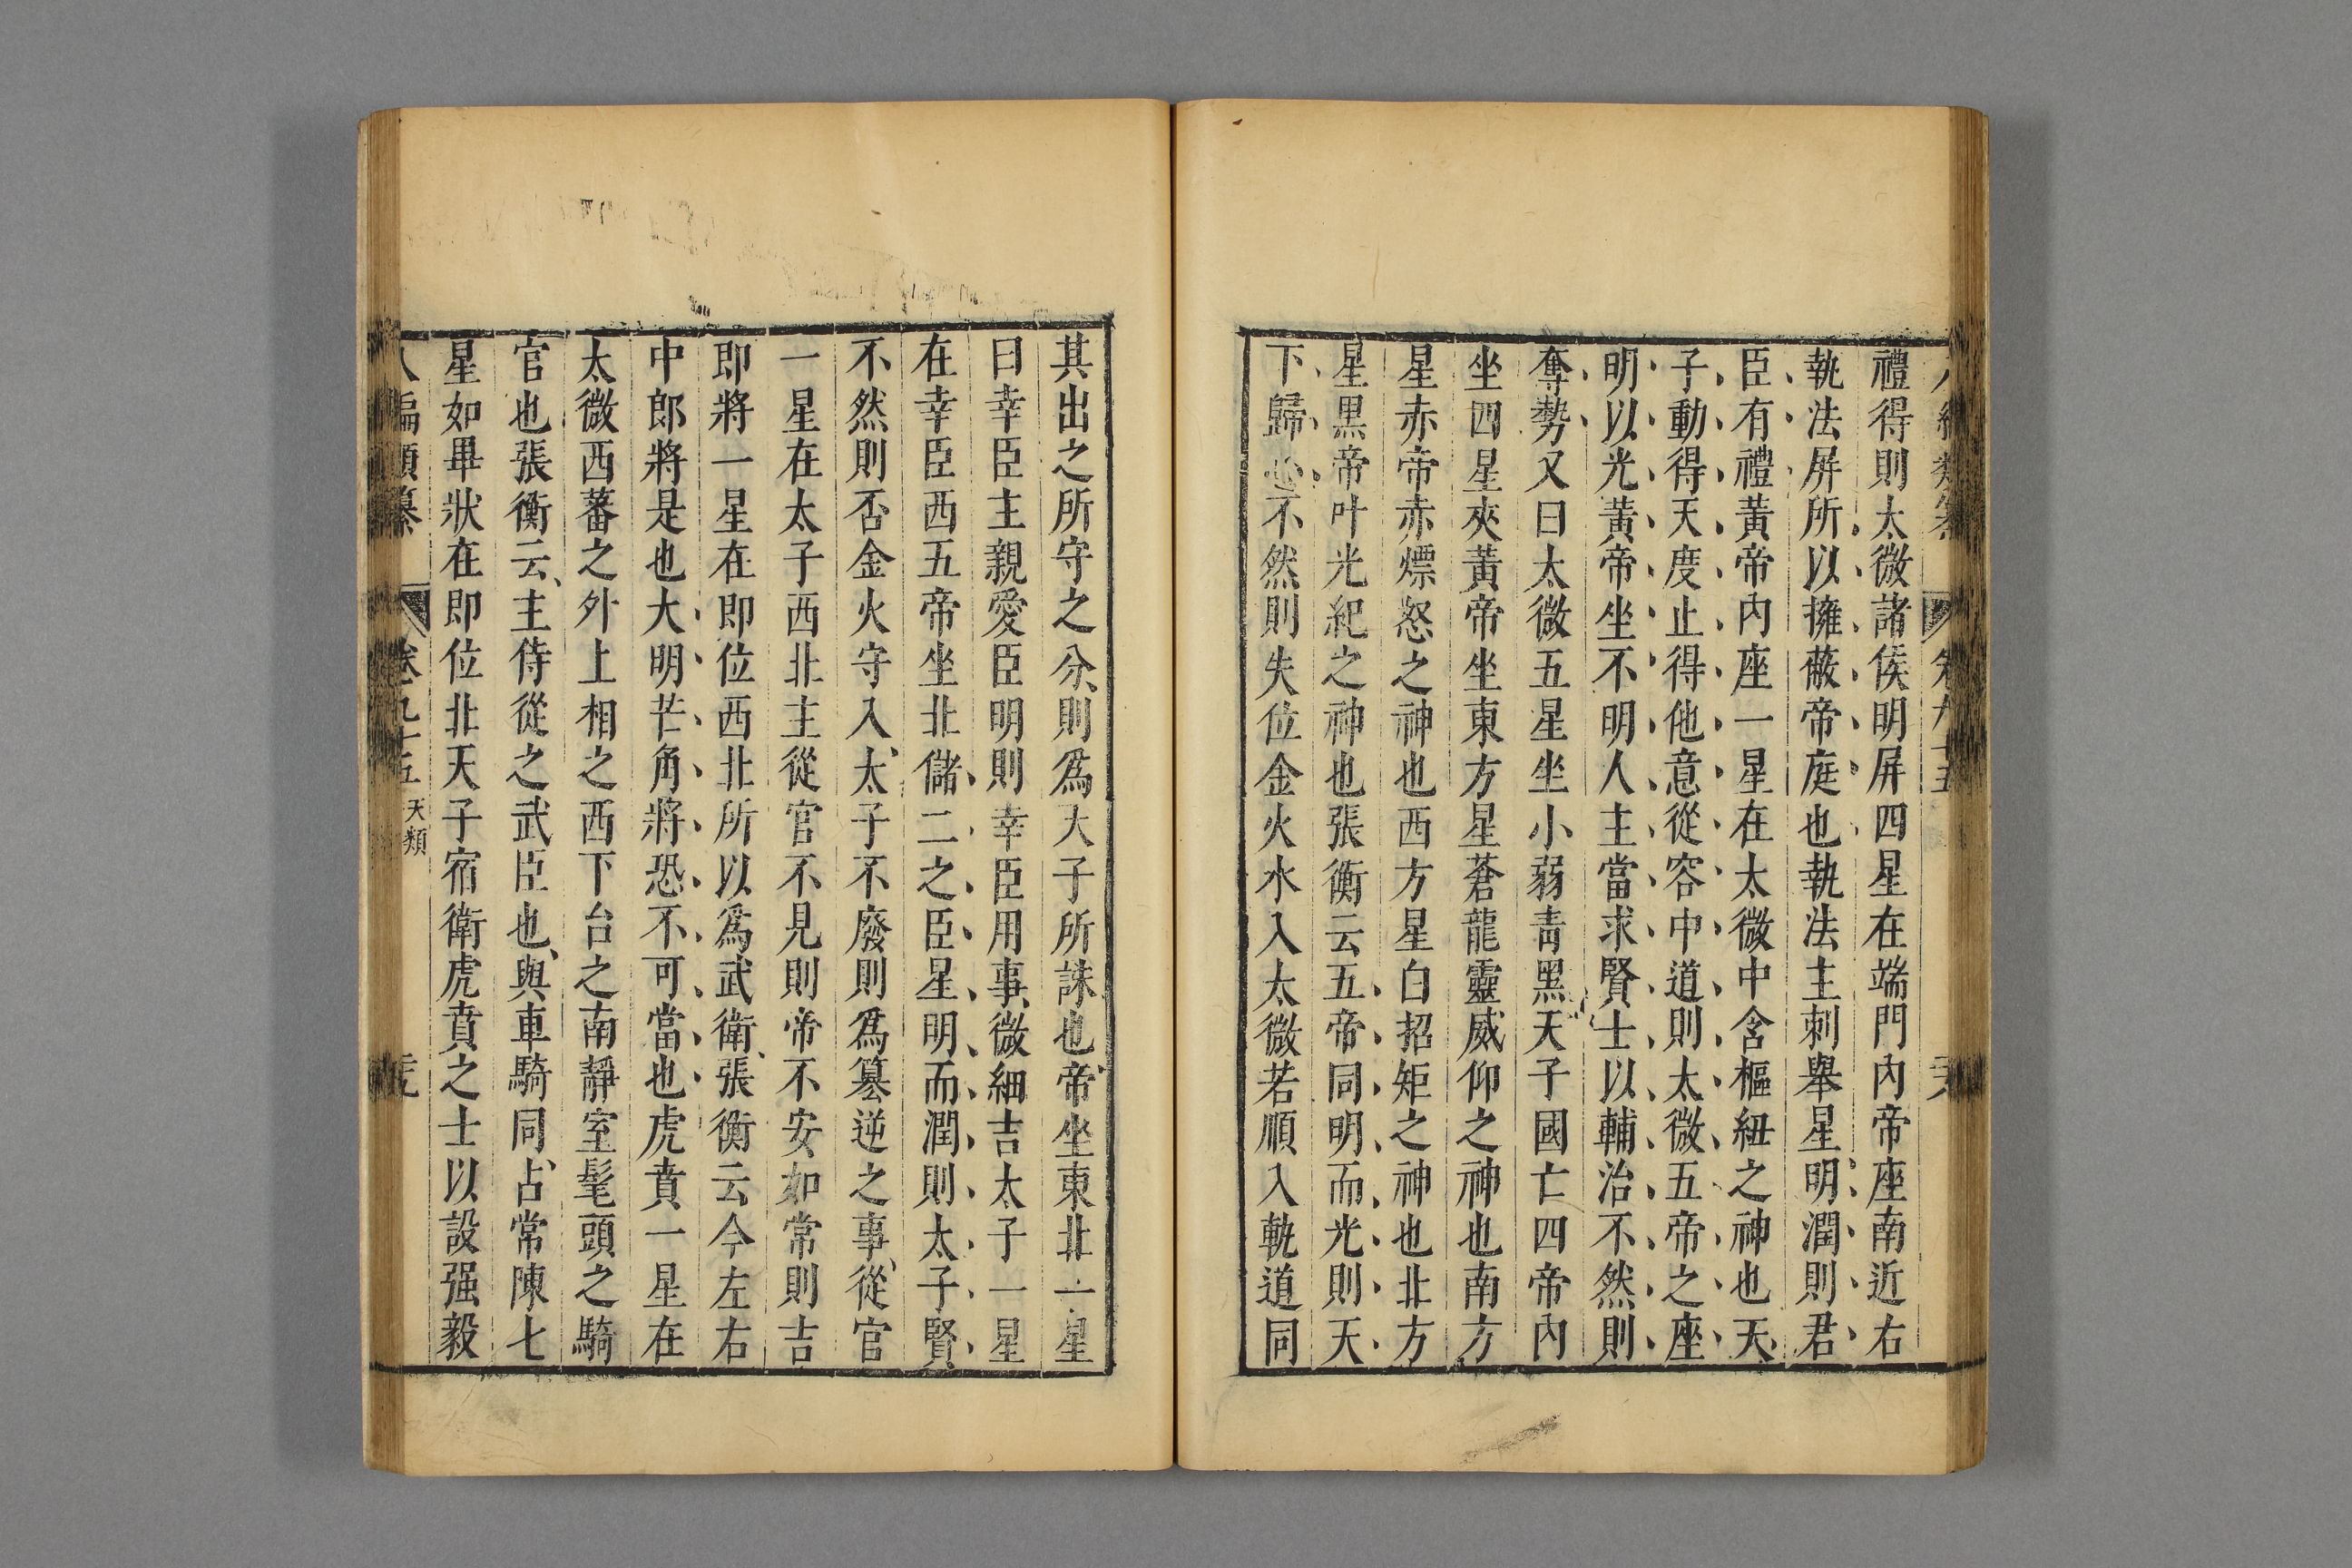 禮得則太微諸侯明屏四星在端門內帝座南近右
執法屏所以擁蔽帝庭也執法主刺舉星明潤則君
臣有禮黃帝內座一星在太微中含樞紐之神也天
子動得天度止得他意從容中道則太微五帝之座
明以光黃帝坐不明人主當求賢士以輔治不然則
奪勢又曰太微五星坐小弱青黑天子國亡四帝內
坐四星夾黃帝坐東方星蒼龍靈威仰之神也南方
星赤帝赤熛怒之神也西方星白招矩之神也北方
星黑帝叶光紀之神也張衡云五帝同明而光則天
下歸心不然則失位金火水入太微若順入軌道同
其出之所守之分則爲大子所誅也帝坐東北一星
曰幸臣主親愛臣明則幸臣用事微細吉太子一星
在幸臣西五帝坐北儲二之臣星明而潤則太子賢
不然則否金火守入太子不廢則爲篡逆之事從官
一星在太子西北主從官不見則帝不安如常則吉
即將一星在即位西北所以爲武衛張衡云今左右
中郎將是也大明芒角將恐不可當也虎賁一星在
太微西蕃之外上相之西下台之南靜室髦頭之騎
官也張衡云主侍從之武臣也與車騎同占常陳七
星如畢狀在即位北天子宿衛虎賁之士以設强毅
八編類纂 卷九十五 天類